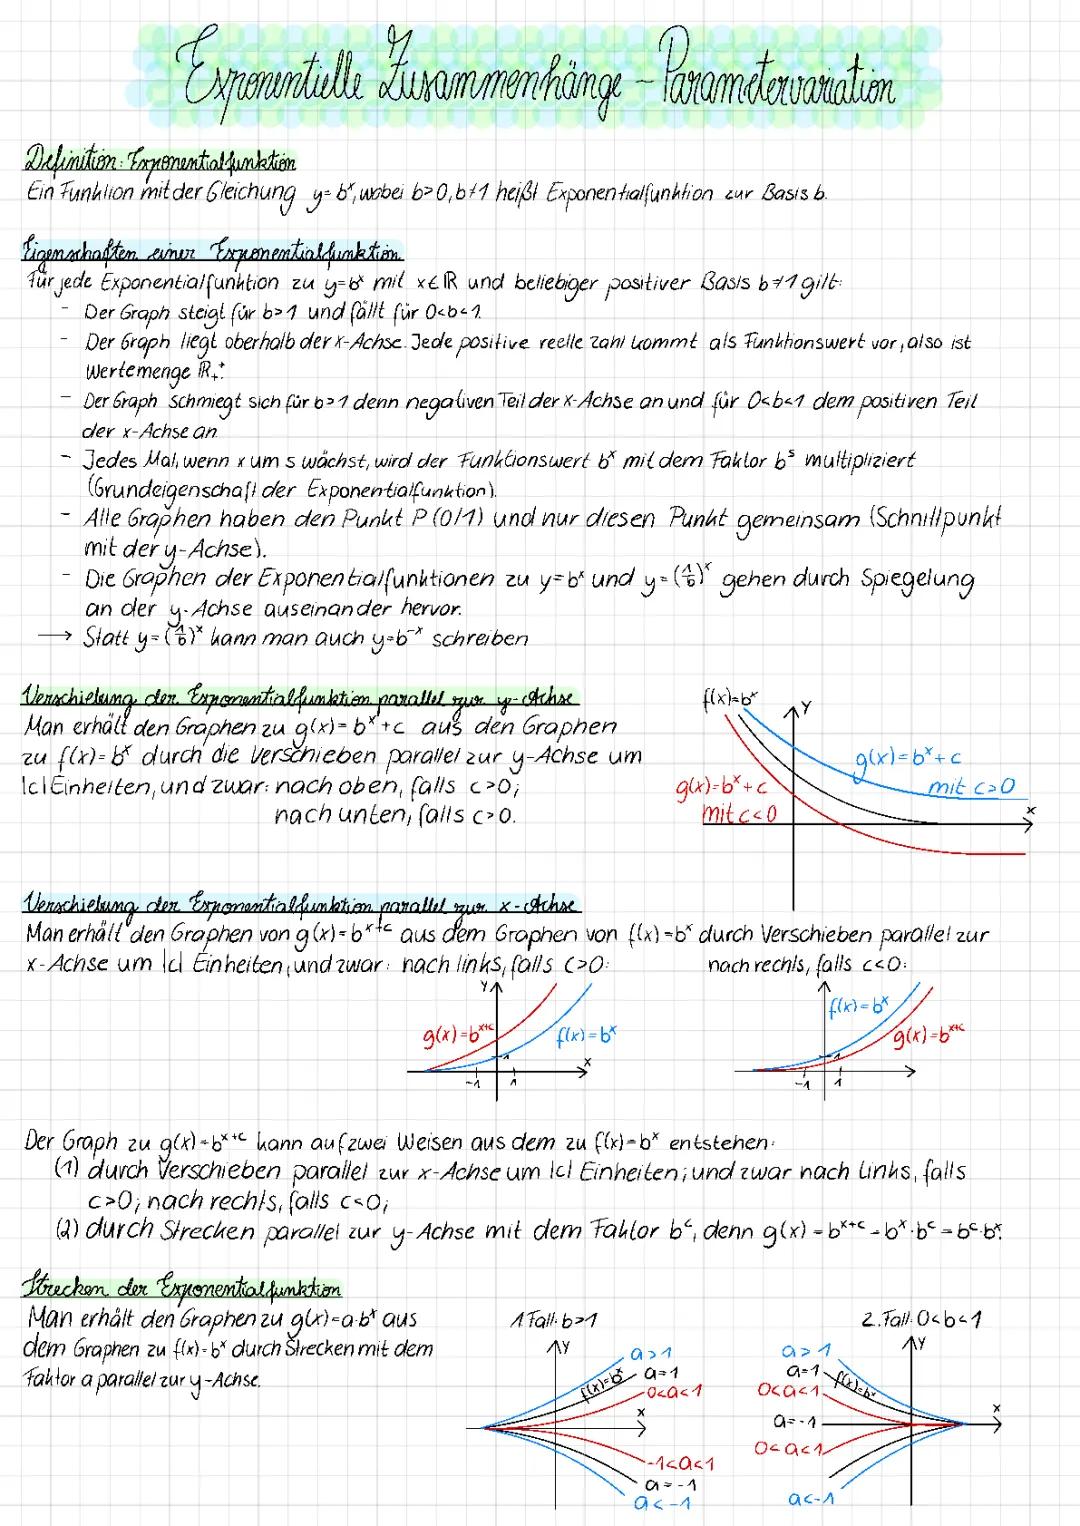 Exponentielle Zusammenhänge - Parametervariation
Definition: Exponentialfunktion
Ein Funktion mit der Gleichung y=b^x, wobei b>0, b≠1 heißt Exponentialfunktion zur Basis b.
Eigenschaften einer Exponentialfunktion
Für jede Exponentialfunktion zu y=b^x mit x∈ℝ und beliebiger positiver Basis b≠1 gilt:
- Der Graph steigt für b>1 und fällt für 0<b<1.
- Der Graph liegt oberhalb der x-Achse. Jede positive reelle Zahl kommt als Funktionswert vor, also ist
Wertemenge ℝ₊⁺.
- Der Graph schmiegt sich für b>1 denn negativen Teil der x-Achse an und für 0<b<1 dem positiven Teil
der x-Achse an
- Jedes Mal, wenn x um s wächst, wird der Funktionswert b^x mit dem Faktor b^s multipliziert
(Grundeigenschaft der Exponentialfunktion).
- Alle Graphen haben den Punkt P(0/1) und nur diesen Punkt gemeinsam (Schnittpunkt
mit der y-Achse).
- Die Graphen der Exponentialfunktionen zu y=b^x und y=(1/b)^x gehen durch Spiegelung
an der y-Achse auseinander hervor.
→ Statt y=(1/b)^x kann man auch y=b^-x schreiben
Verschiebung der Exponentialfunktion parallel zur y-Achse
Man erhält den Graphen zu g(x)=b^x+c aus den Graphen
zu f(x)=b^x durch die Verschieben parallel zur y-Achse um
|c| Einheiten, und zwar: nach oben, falls c>0;
nach unten, falls c>0.
f(x)=b^x
y
g(x)=b^x+c
mit c>0
g(x)=b^x+c
mit c<0
x
Verschiebung der Exponentialfunktion parallel zur x-Achse
Man erhält den Graphen von g(x)=b^x+c aus dem Graphen von f(x)=b^x durch Verschieben parallel zur
x-Achse um |c| Einheiten, und zwar: nach links, falls c>0: nach rechts, falls c<0:
y
g(x)=b^x+c
f(x)=b^x
x
1
-1
1
f(x)=b^x
g(x)=b^x+c
1
-1
1
Der Graph zu g(x)=b^x+c kann auf zwei Weisen aus dem zu f(x)=b^x entstehen:
(1) durch Verschieben parallel zur x-Achse um |c| Einheiten; und zwar nach links, falls
c>0; nach rechts, falls c<0;
(2) durch Strecken parallel zur y-Achse mit dem Faktor b^c, denn g(x)=b^x+c=b^x·b^c=b^c·b^x.
Strecken der Exponentialfunktion
Man erhält den Graphen zu g(x)=a·b^x aus
dem Graphen zu f(x)=b^x durch Strecken mit dem
Faktor a parallel zur y-Achse.
1 Fall: b>1
y
a>1
f(x)=b^x
a=1
0<a<1
x
-1<a<1
a=-1
a<-1
2. Fall: 0<b<1
y
a>1
a=1
f(x)=b^x
0<a<1
a=-1
x
0<a<1
a<-1